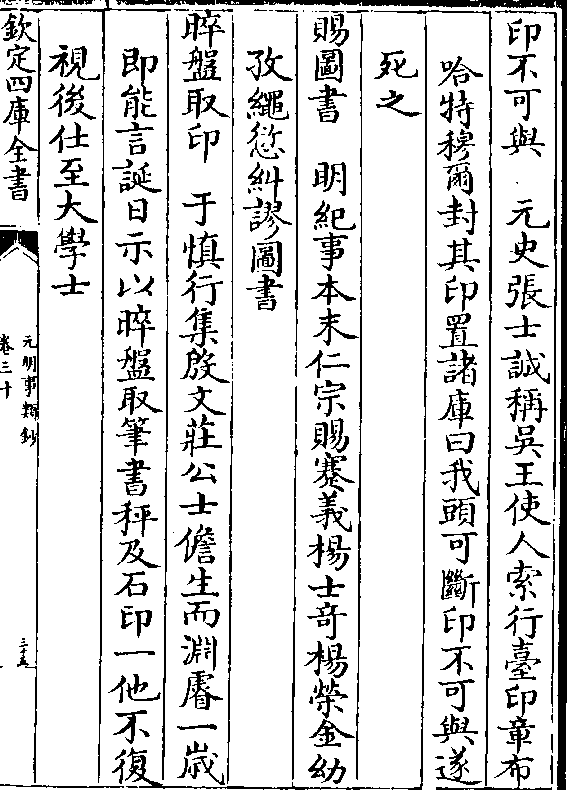 印不可與　元史張士誠稱吳王使人索行臺印章布
哈特穆爾封其印置諸庫曰我頭可斷印不可與遂
死之
賜圖書　明紀事本末仁宗賜蹇義楊士奇楊榮金幼
孜繩愆糾謬圖書
晬盤取印　于慎行集殷文莊公士儋生而淵睿一歲
即能言誕日示以晬盤取筆書秤及石印一他不復
視後仕至大學士
欽定四庫全書
元明事類鈔
卷三十
三十五